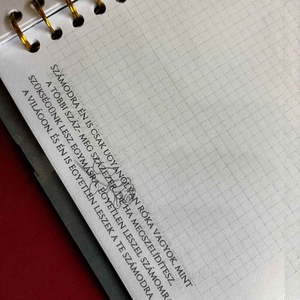 SZÁMODRA ÉN IS CSAK UGYANOLYAN RÓKA VAGYOK, MINT
A TÖBBI SZÁZ- MEG SZÁZEZER. DE HA MEGSZELÍDÍTESZ,
SZÜKSÉGÜNK LESZ EGYMÁSRA. EGYETLEN LESZEL SZÁMOMRA
A VILÁGON. ÉS ÉN IS EGYETLEN LESZEK A TE SZÁMODRA